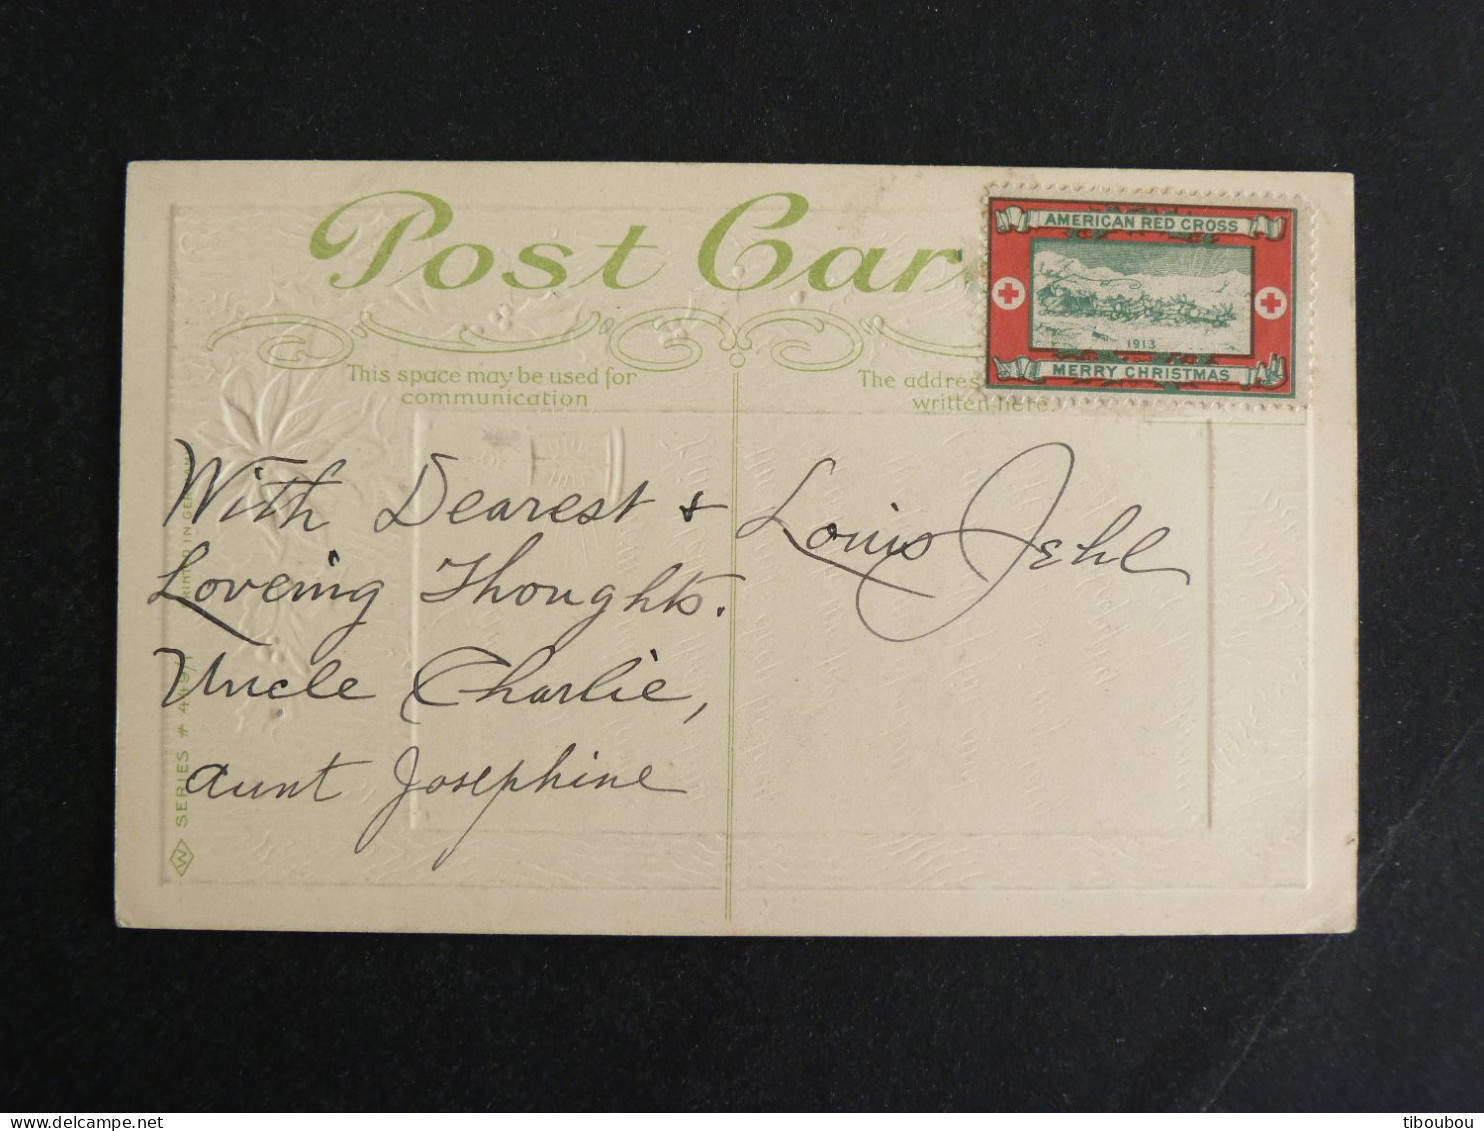 Post Car
AMERICAN RED CROSS
1913
MERRY CHRISTMAS
This space may be used for
communication
The addres
written here.
With Dearest &
Loveing Thoughts.
Uncle Charlie,
Aunt Josephine
Louis Jehl
PRINTED IN GERMANY
SERIES # 449/1
W
tiboubou